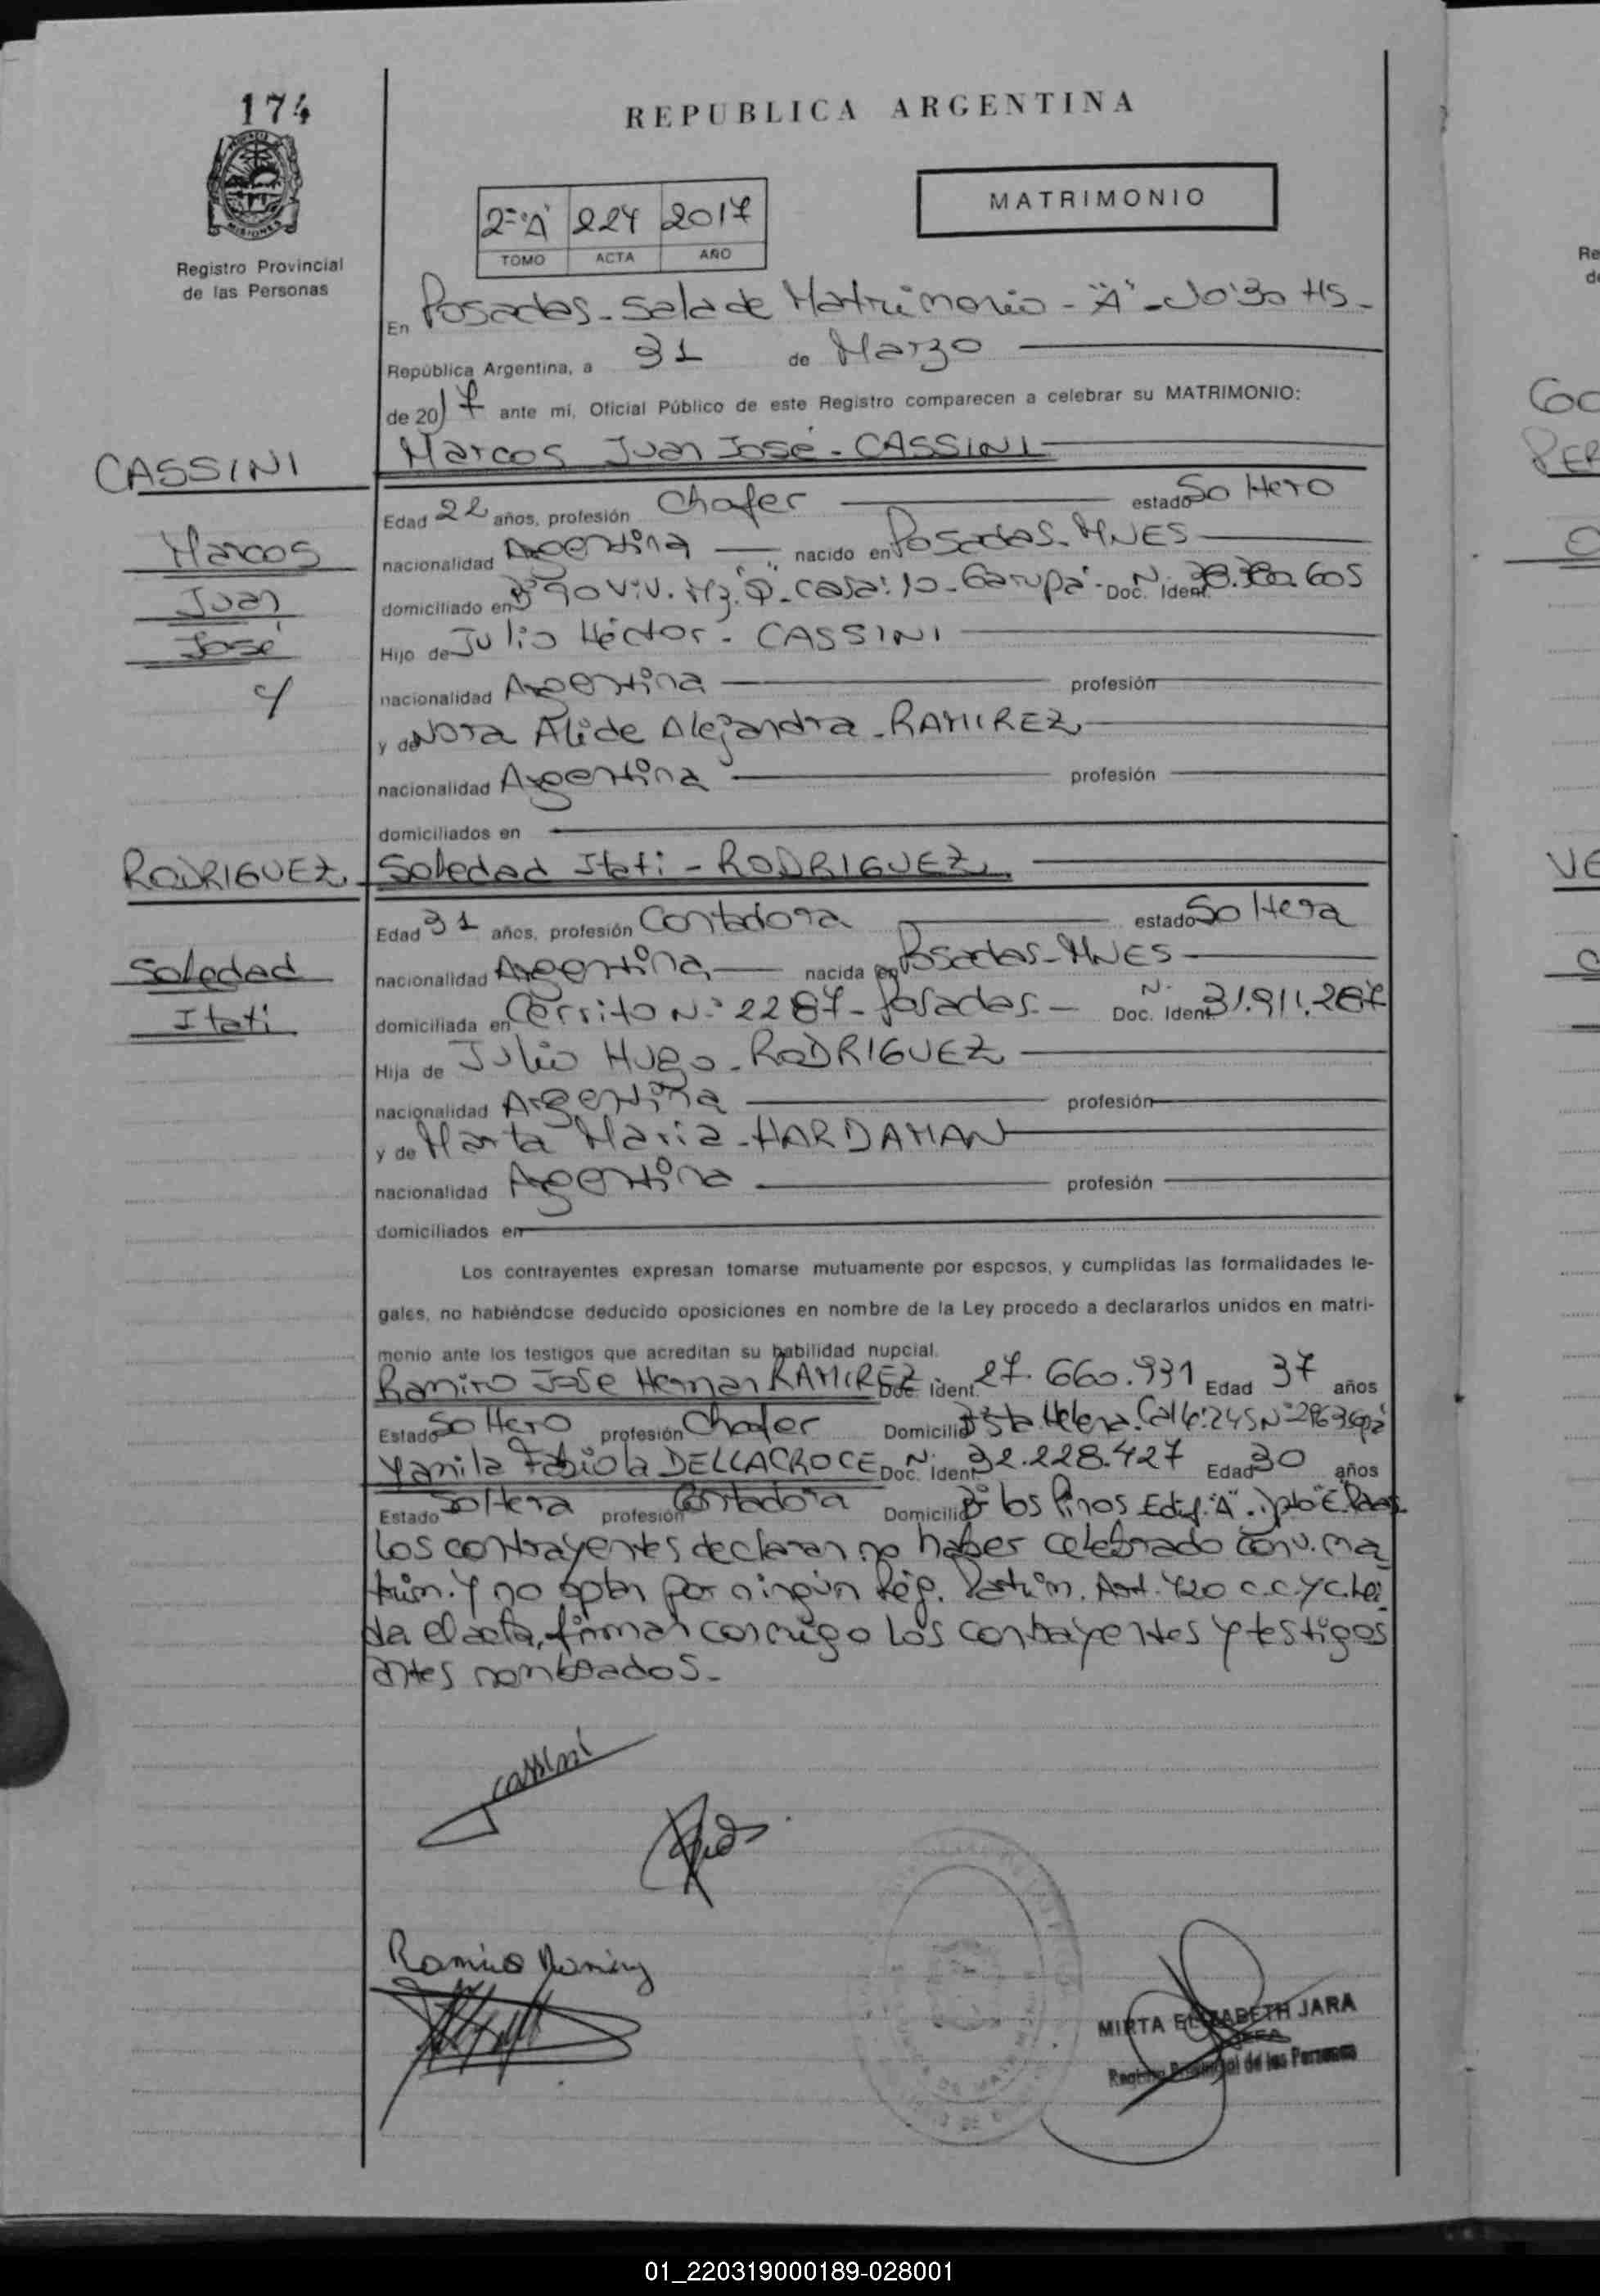 174
REPUBLICA ARGENTINA
MATRIMONIO
2= "A" 224 2017
TOMO ACTA AÑO
Registro Provincial
de las Personas
MISIONES
En Posadas - Sala de Matrimonio - "A" - 10:30 HS -
República Argentina, a 31 de Marzo
de 2017 ante mí, Oficial Público de este Registro comparecen a celebrar su MATRIMONIO:
CASSINI
Marcos Juan José - CASSINI
Edad 22 años, profesión Chofer estado Soltero
Marcos
nacionalidad Argentina nacido en Posadas - MNES
Juan
domiciliado en Bº 90 Viv. Mz. "Q" - casa: 10 - Garupá - Doc. Ident. Nº 38.380.605
José
Hijo de Julio Héctor - CASSINI
y
nacionalidad Argentina profesión
y de Nora Alide Alejandra - RAMIREZ
nacionalidad Argentina profesión
domiciliados en
RODRIGUEZ
Soledad Itati - RODRIGUEZ
Edad 31 años, profesión Contadora estado Soltera
Soledad
nacionalidad Argentina nacida en Posadas - MNES
Itati
domiciliada en Cerrito Nº 2287 - Posadas - Doc. Ident. Nº 31.911.287
Hija de Julio Hugo - RODRIGUEZ
nacionalidad Argentina profesión
y de Marta Maria - HARDAMAN
nacionalidad Argentina profesión
domiciliados en
Los contrayentes expresan tomarse mutuamente por esposos, y cumplidas las formalidades le-
gales, no habiéndose deducido oposiciones en nombre de la Ley procedo a declararlos unidos en matri-
monio ante los testigos que acreditan su habilidad nupcial.
Ramiro José Hernan RAMIREZ Doc. Ident. 27.660.931 Edad 37 años
Estado Soltero profesión Chofer Domicilio Bº Sta Helena. Calle: 245 Nº 2963
Yamila Fabiola DELLACROCE Doc. Ident. Nº 32.228.427 Edad 30 años
Estado Soltera profesión Contadora Domicilio Bº los Pinos Edif. "A".
Los contrayentes declaran no haber celebrado conv. ma
trim. y no optan por ningún Rég. Patrim. Art. 420 c.c. y c. Leí
da el acta, firman conmigo los contrayentes y testigos
antes nombrados.-
Cassini
Ramiro Ramirez
MIRTA ELIZABETH JARA
JEFA
Registro Provincial de las Personas
Re
d
GO
PER
VE
01_220319000189-028001